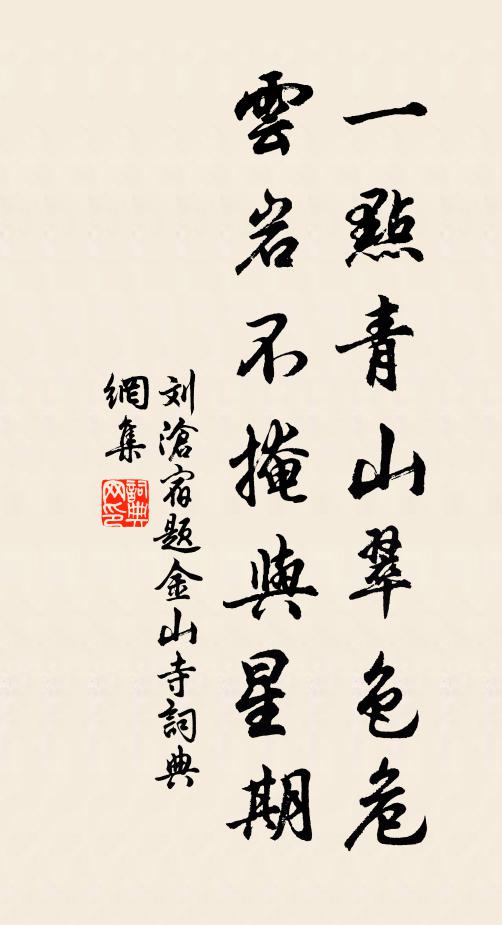 一點青山翠色危
雲岩不掩與星期
刘滄宿題金山寺詞典
網集
詞典網印